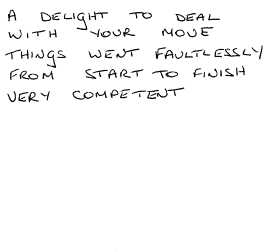 A DELIGHT TO DEAL
WITH YOUR MOVE
THINGS WENT FAULTLESSLY
FROM START TO FINISH
VERY COMPETENT